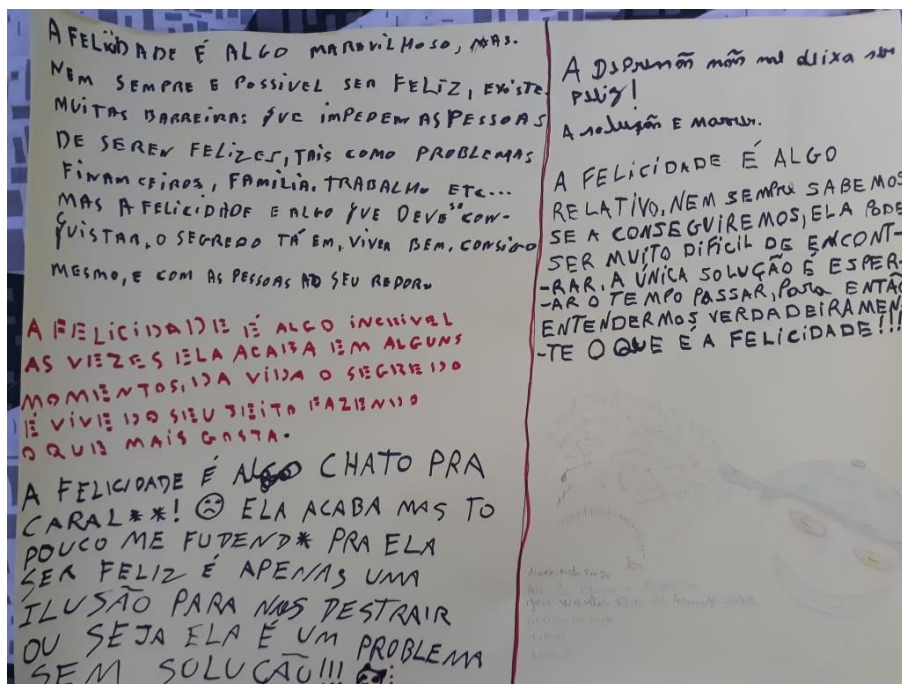 A FELICIDADE É ALGO MARAVILHOSO, MAS.
NEM SEMPRE E POSSIVEL SER FELIZ, EXISTE
MUITAS BARREIRAS QUE IMPEDEM AS PESSOAS
DE SEREM FELIZES, TAIS COMO PROBLEMAS
FINANCEIROS, FAMÍLIA. TRABALHO ETC...
MAS A FELICIDADE E ALGO QUE DEVE SO CON-
QUISTAR, O SEGREDO TÁ EM, VIVER BEM, CONSIGO
MESMO, E COM AS PESSOAS AO SEU REDOR.
A FELICIDADE É ALGO INCRIVEL
AS VEZES ELA ACABA EM ALGUNS
MOMENTOS, DA VIDA O SEGREDO
É VIVE DO SEU JEITO FAZENDO
O QUE MAIS GOSTA.
A FELICIDADE É ALGO CHATO PRA
CARAL**! ☹ ELA ACABA MAS TO
POUCO ME FUDEND* PRA ELA
SER FELIZ É APENAS UMA
ILUSÃO PARA NOS DESTRAIR
OU SEJA ELA É UM PROBLEMA
SEM SOLUÇÃO!!!
A não me deixa ser
feliz!
A solução E
A FELICIDADE É ALGO
RELATIVO, NEM SEMPRE SABEMOS
SE A CONSEGUIREMOS, ELA PODE
SER MUITO DIFICIL DE ENCONT-
-RAR. A ÚNICA SOLUÇÃO É ESPER-
-AR O TEMPO PASSAR, PARA ENTÃO
ENTENDERMOS VERDADEIRAMEN-
-TE O QUE É A FELICIDADE!!!